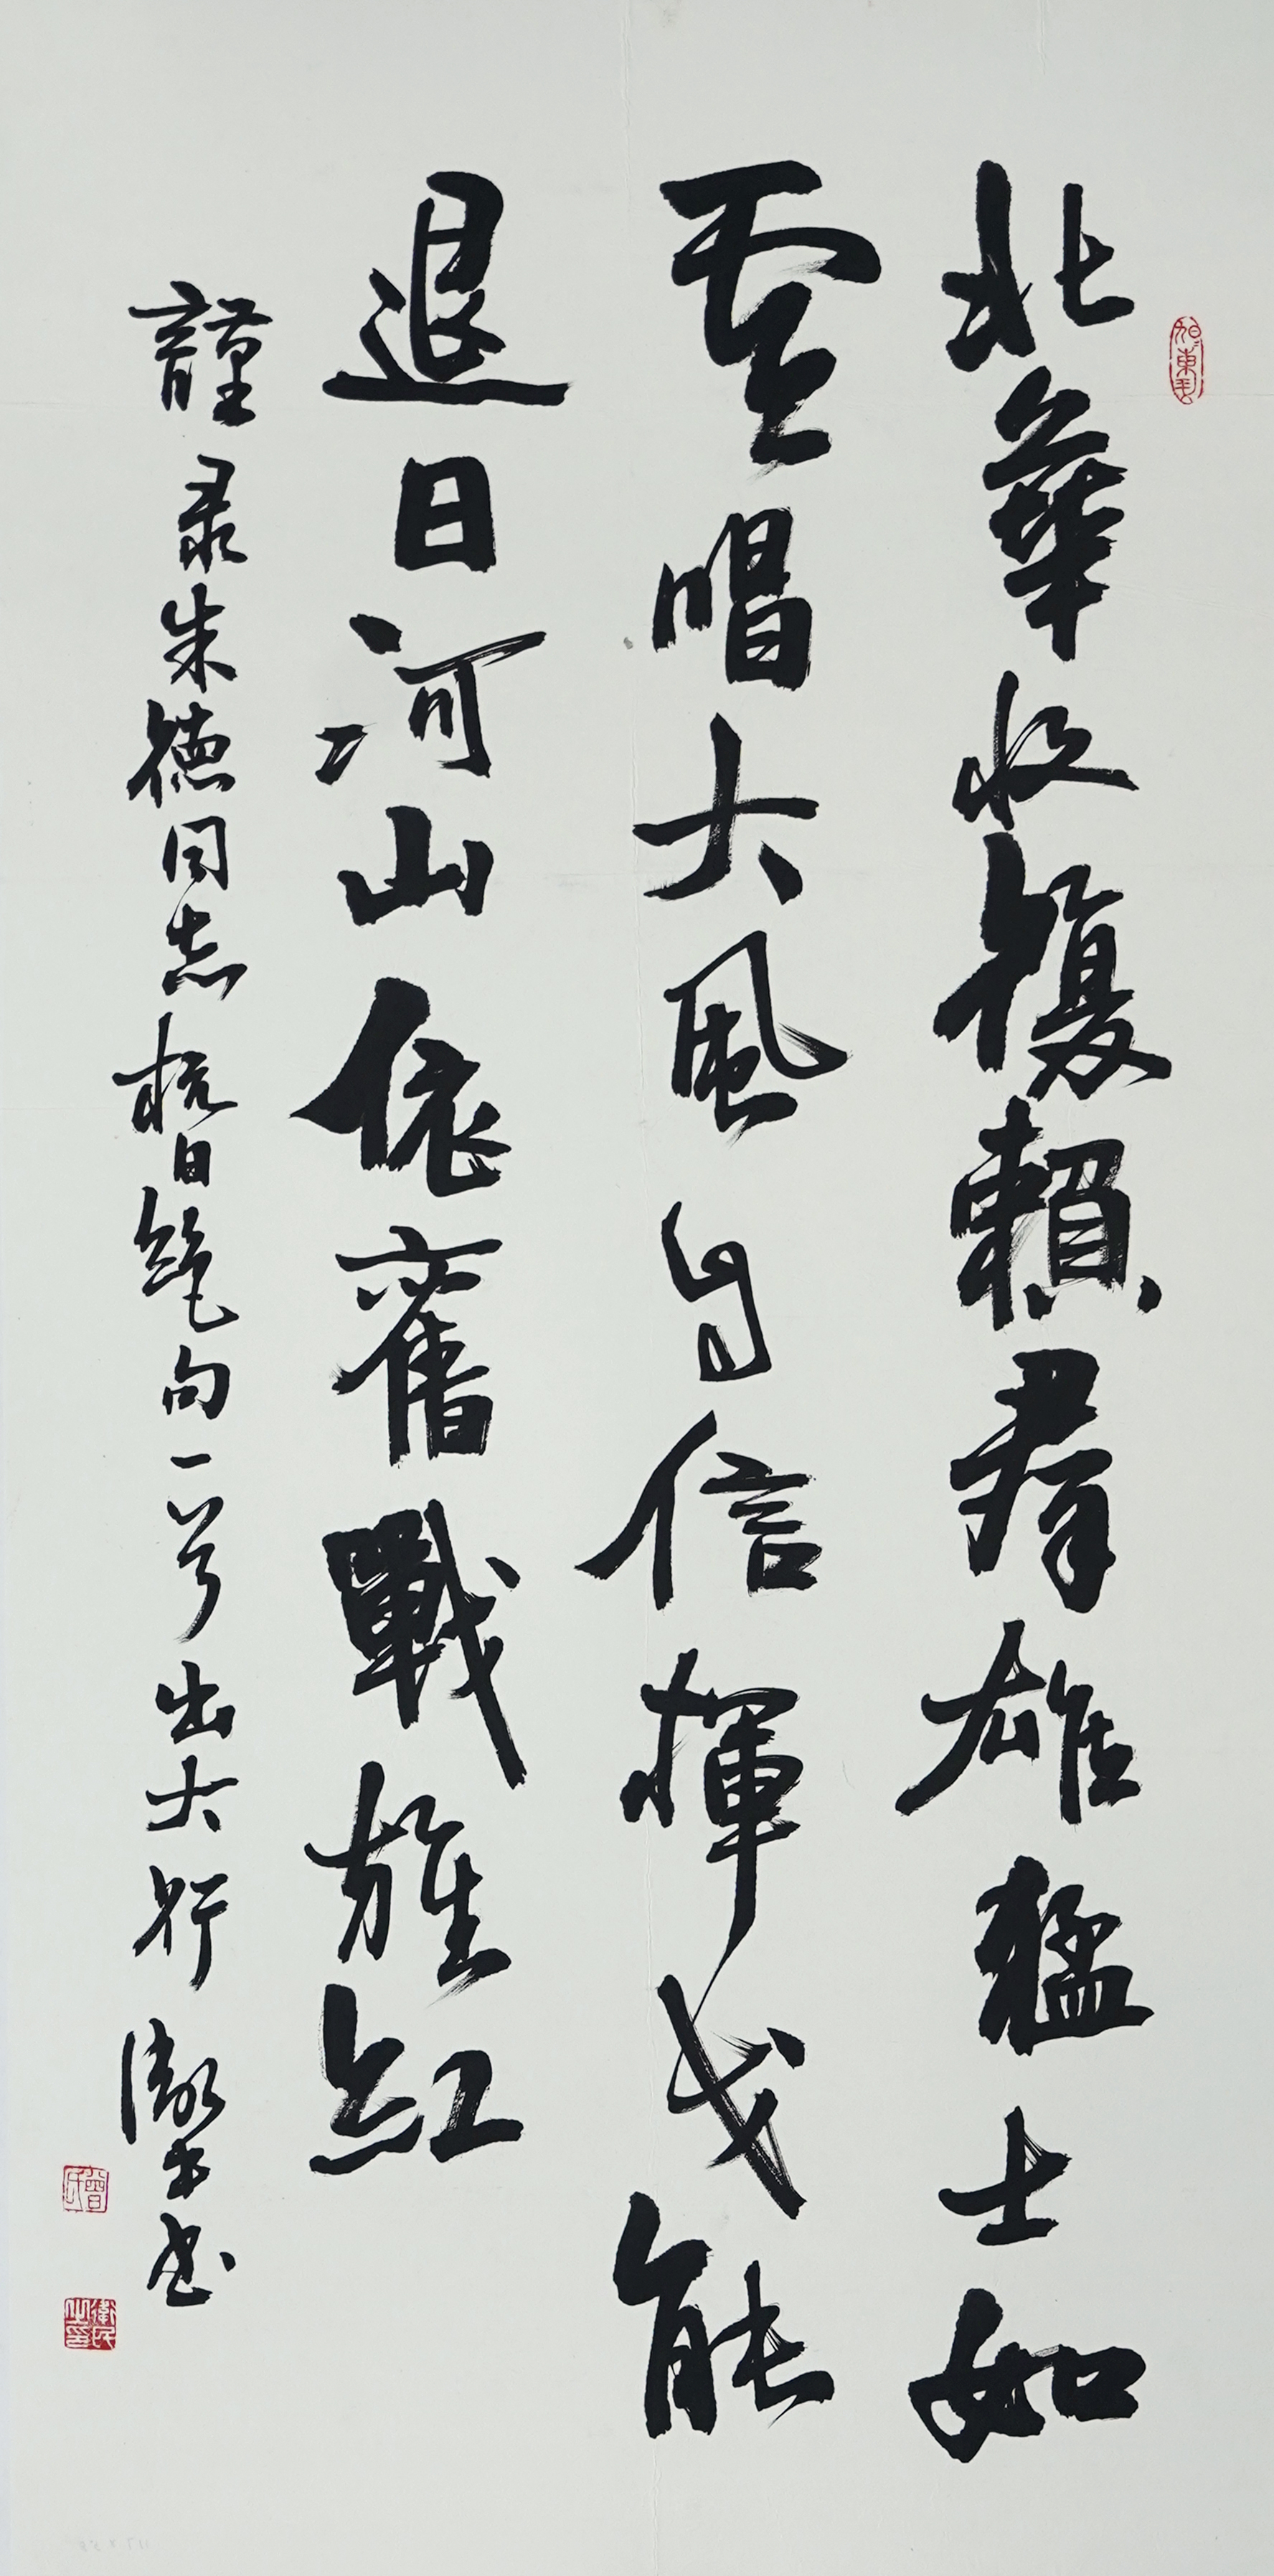 北華收復賴羣雄猛士如
雲唱大風自信揮戈能
退日河山依舊戰旌紅
謹录朱德同志抗日絕句一首出太行书
曾氏